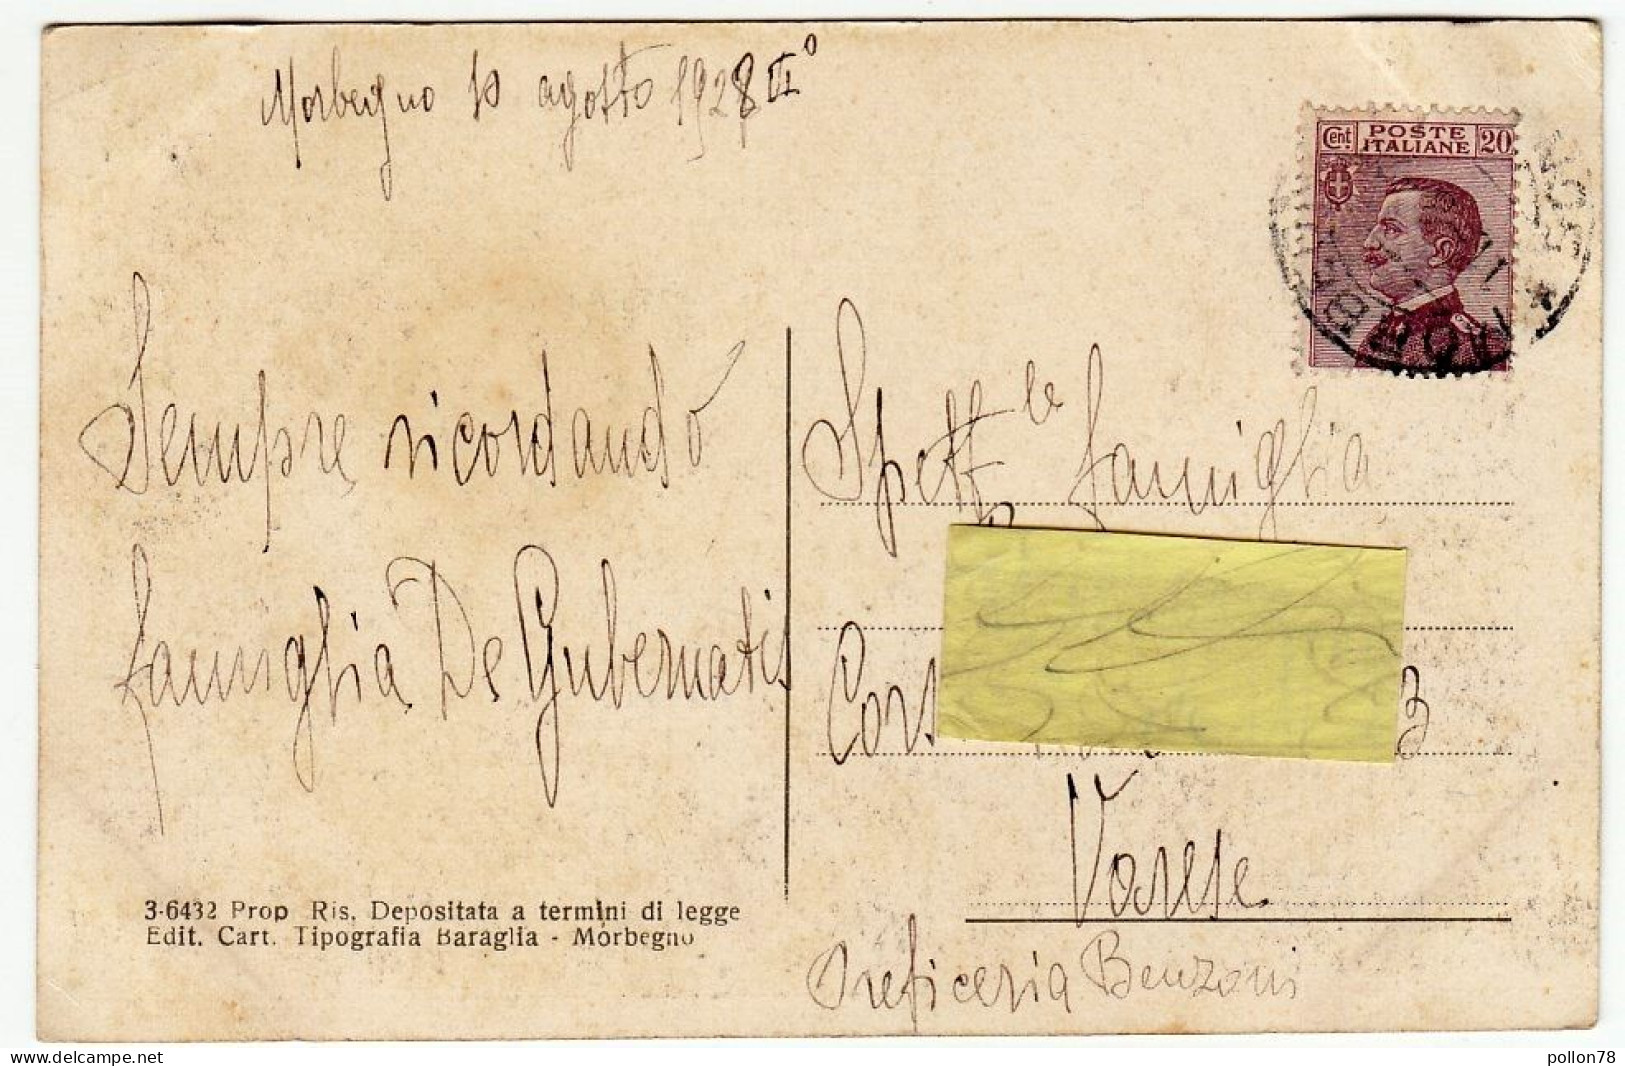 Morbegno 10 agosto 1928 VIº
Cent. POSTE ITALIANE 20
Sempre ricordando
famiglia De Gubernatis
Spett.le famiglia
Cors 3
Varese
Oreficeria Benzoni
3-6432 Prop Ris. Depositata a termini di legge
Edit. Cart. Tipografia Baraglia - Morbegno
www.delcampe.net
pollon78